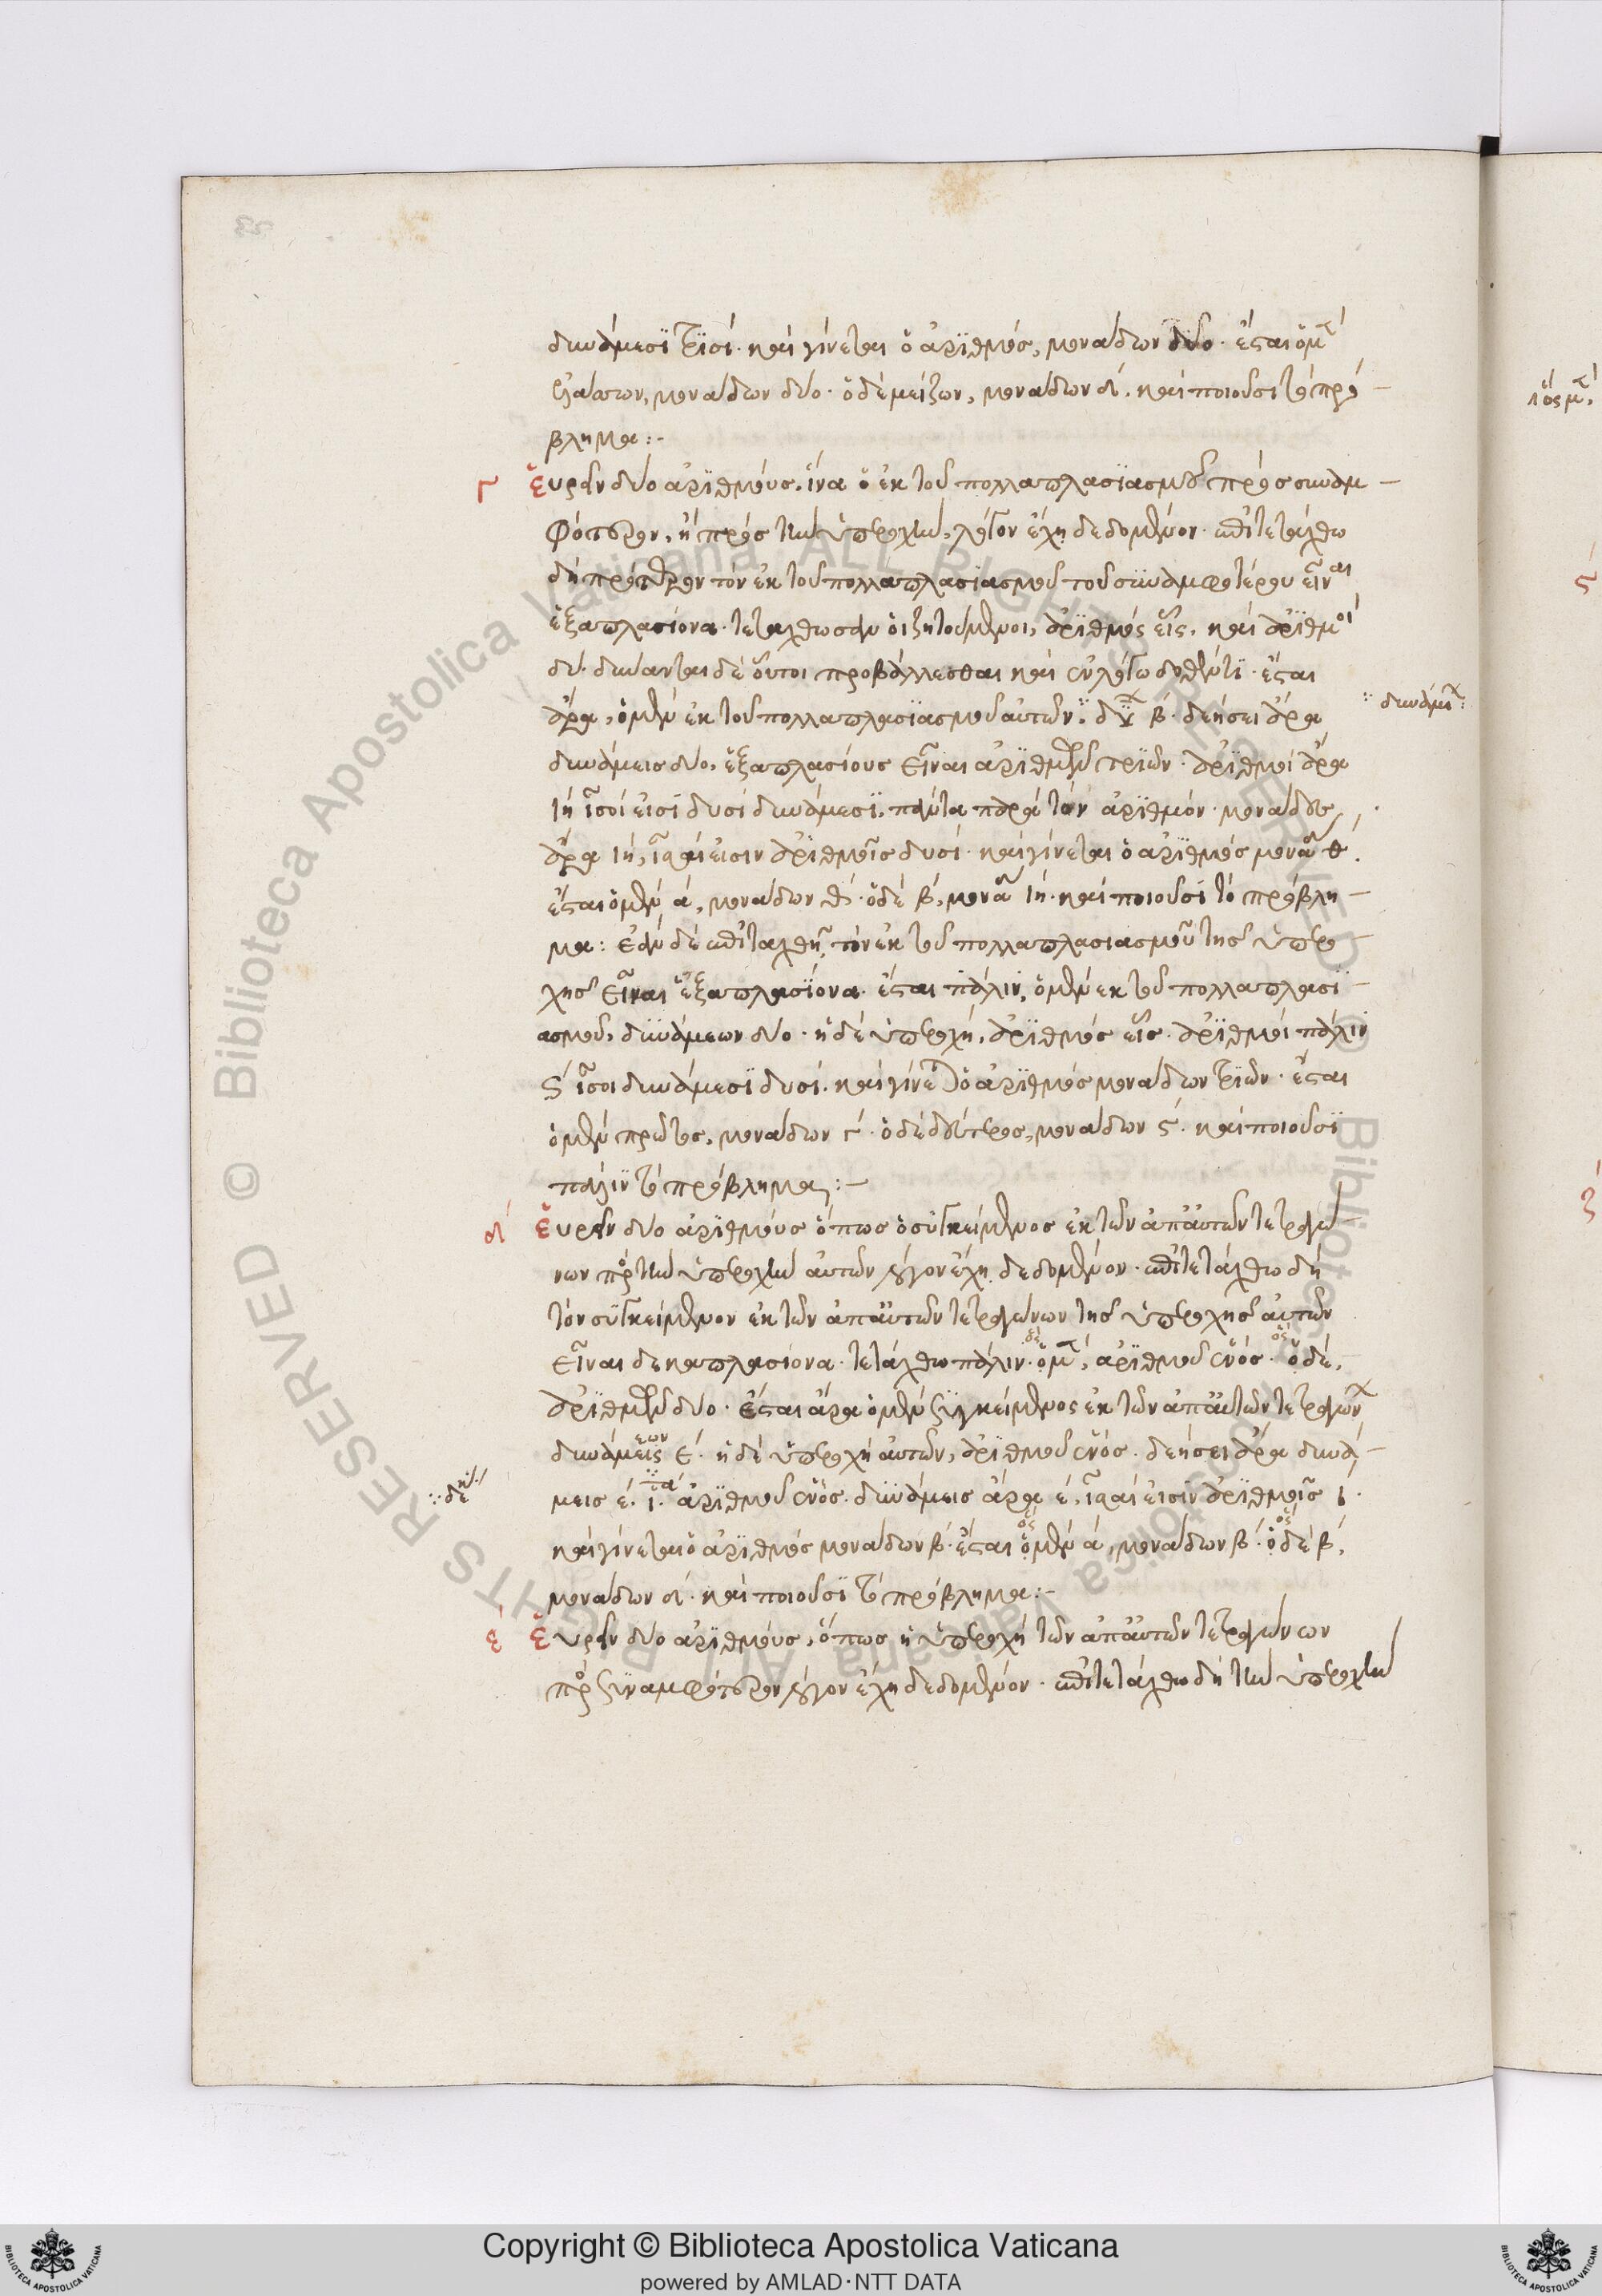 δυνάμεσϊ τρϊσί. καὶ γίνεται ὁ ἀρϊθμὸς, μονάδων δύο. ἔσται ὁ μὲν
ἐλάσσων, μονάδων δύο. ὁ δὲ μείζων, μονάδων δ´. καὶ ποιοῦσι τὸ πρό-
βλημα:-
Γ Εὑρεῖν δύο ἀρϊθμοὺς. ἵνα ὁ ἐκ τοῦ πολλαπλασϊασμοῦ πρὸς συναμ-
φότερον, ἢ πρὸς τὴν ὑπεροχὴν, λόγον ἔχῃ δεδομένον. ἐπιτετάχθω
δὴ πρότερον τὸν ἐκ τοῦ πολλαπλασϊασμοῦ τοῦ συναμφοτέρου εἶναι
ἑξαπλασίονα. τετάχθωσαν οἱ ζητούμενοι, ἀρϊθμὸς εἷς. καὶ ἀρϊθμοὶ
δύο. δύνανται δὲ οὗτοι προβάλλεσθαι καὶ ἐν λόγω δοθέντϊ. ἔσται
ἄρα, ὁ μὲν ἐκ τοῦ πολλαπλασϊασμοῦ αὐτῶν. δυ β´. δεήσει ἄρα
∵ δυνάμε:
δυνάμεις δύο, ἑξαπλασίους εἶναι ἀρϊθμῶν τρϊῶν. ἀρϊθμοὶ ἄρα
ιή ἴσοί εἰσϊ δυσὶ δυνάμεσϊ. πάντα παρὰ τὸν ἀρϊθμόν. μονάδες
ἄρα ιή, ἴσαι εἰσιν ἀρϊθμοῖς δυσί. καὶ γίνεται ὁ ἀρϊθμὸς μονάδων θ.
ἔσται ὁ μὲν ά, μονάδων θ´. ὁ δὲ β´, μονάδων ιή. καὶ ποιοῦσϊ τὸ πρόβλη-
μα: ἐὰν δὲ ἐπιταχθῇ, τὸν ἐκ τοῦ πολλαπλασιασμοῦ τῆς ὑπερο-
χῆς εἶναι ἑξαπλασϊόνα. ἔσται πάλιν, ὁ μὲν ἐκ τοῦ πολλαπλασϊ-
ασμοῦ, δυνάμεων δύο. ἡ δὲ ὑπεροχὴ, ἀρϊθμὸς εἷς. ἀρϊθμοὶ πάλιν
ϛ´ ἴσοι δυνάμεσϊ δυσί. καὶ γίνεται ὁ ἀρϊθμὸς μονάδων τρϊῶν. ἔσται
ὁ μὲν πρῶτος, μονάδων γ´. ὁ δὲ δεύτερος, μονάδων ϛ´. καὶ ποιοῦσϊ
πάλιν τὸ πρόβλημα:-
δ´ Εὑρεῖν δύο ἀρϊθμοὺς ὅπως ὁ συγκείμενος ἐκ τῶν ἀπ' αὐτῶν τετραγώ-
νων πρὸς τὴν ὑπεροχὴν αὐτῶν λόγον ἔχῃ δεδομένον. ἐπιτετάχθω δὴ
τὸν συγκείμενον ἐκ τῶν ἀπ' αὐτῶν τετραγώνων τῆς ὑπεροχῆς αὐτῶν
εἶναι δεκαπλασίονα. τετάχθω πάλιν. ὁ μὲν, ἀρϊθμοῦ ἑνός. ὁ δὲ,
ἀρϊθμῶν δύο. ἔσται ἄρα ὁ μὲν συγκείμενος ἐκ τῶν ἀπ' αὐτῶν τετραγώνων
δυνάμεις έ. ἡ δὲ ὑπεροχὴ αὐτῶν, ἀρϊθμοῦ ἑνός. δεήσει ἄρα δυνά-
μεις έ. ί. ἀρϊθμοῦ ἑνός. δυνάμεις ἄρα έ, ἴσαι εἰσϊν ἀρϊθμοῖς ί.
καὶ γίνεται ὁ ἀρϊθμὸς μονάδων β´. ἔσται ὁ μὲν ά, μονάδων β´. ὁ δὲ β´,
μονάδων δ´. καὶ ποιοῦσϊ τὸ πρόβλημα:-
έ Εὑρεῖν δύο ἀρϊθμοὺς, ὅπως ἡ ὑπεροχὴ τῶν ἀπ' αὐτῶν τετραγώνων
πρὸς συναμφότερον λόγον ἔχῃ δεδομένον. ἐπιτετάχθω δὴ τὴν ὑπεροχὴν
Copyright © Biblioteca Apostolica Vaticana
powered by AMLAD·NTT DATA